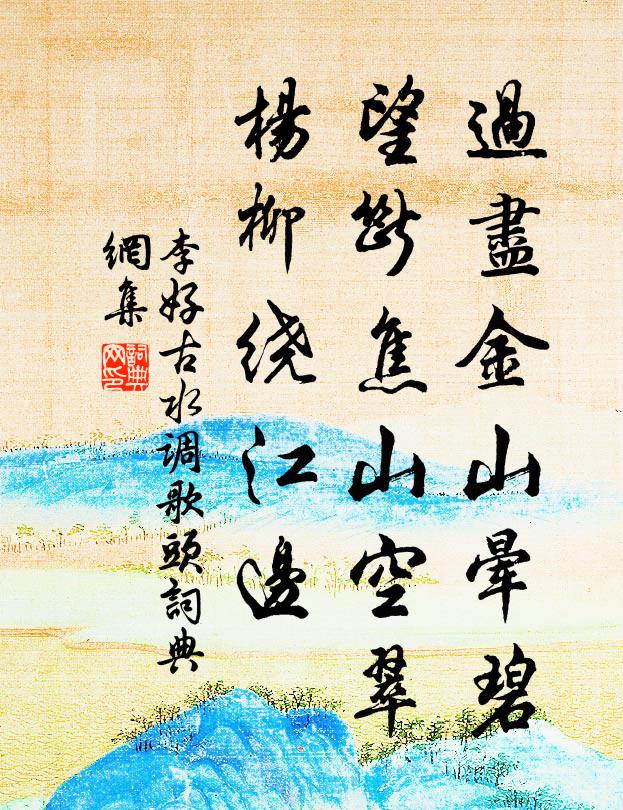 過盡金山暈碧
望斷焦山空翠
楊柳绕江邊
李好古水调歌頭詞典
網集
詞典
网印